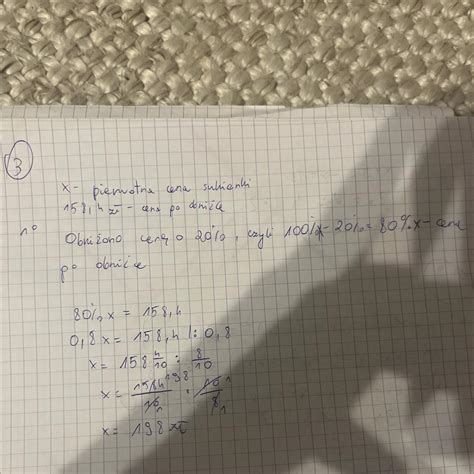 3
x - pierwotna cena sukienki
158,4 zł - cena po obniżce
1°
Obniżono cenę o 20%, czyli 100%x - 20% = 80%x - cena
po obniżce
80%x = 158,4
0,8x = 158,4 /: 0,8
x = 158 4/10 : 8/10
x = 1584 198/10 1 · 10 1/8 1
x = 198 zł